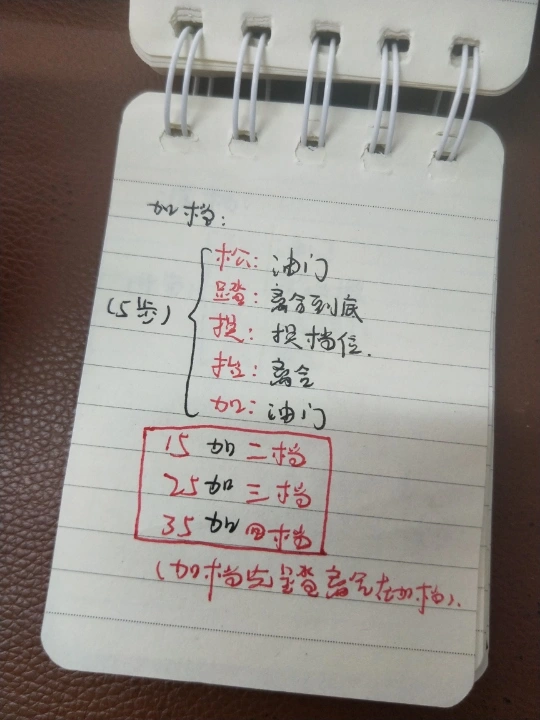 加档:
(5步)
松: 油门
踏: 离合到底
换: 换档位.
抬: 离合
加: 油门
15 加二档
25加 三档
35 加四档
(加档先踏离合在加档).